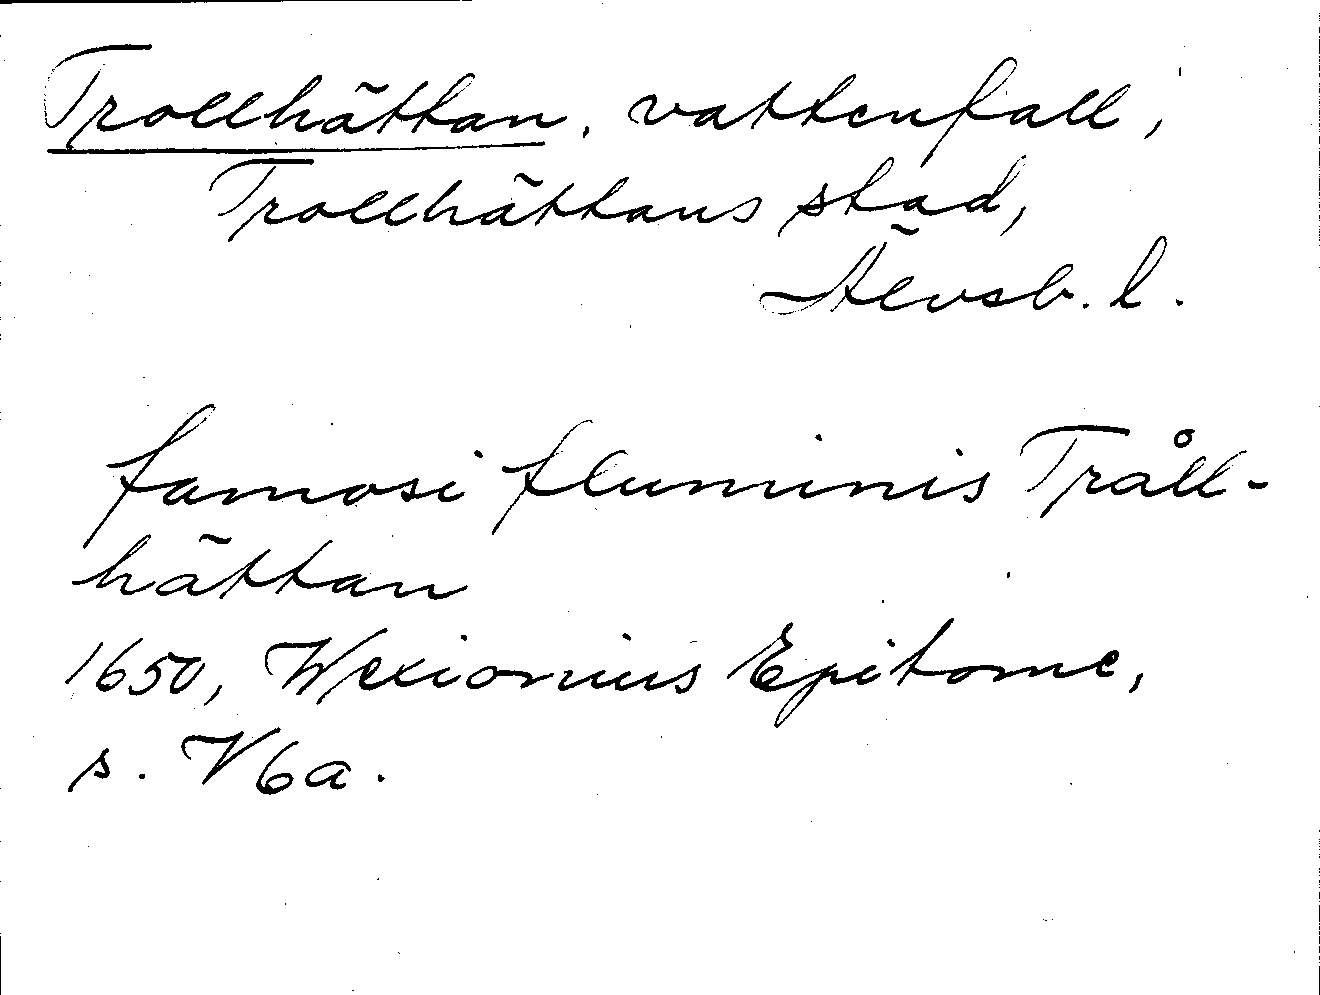 Trollhättan, vattenfall,
Trollhättans stad,
Älvsb. l.
famosi fluminis Tråll-
hättan
1650, Wexionius Epitome,
s. V6a.